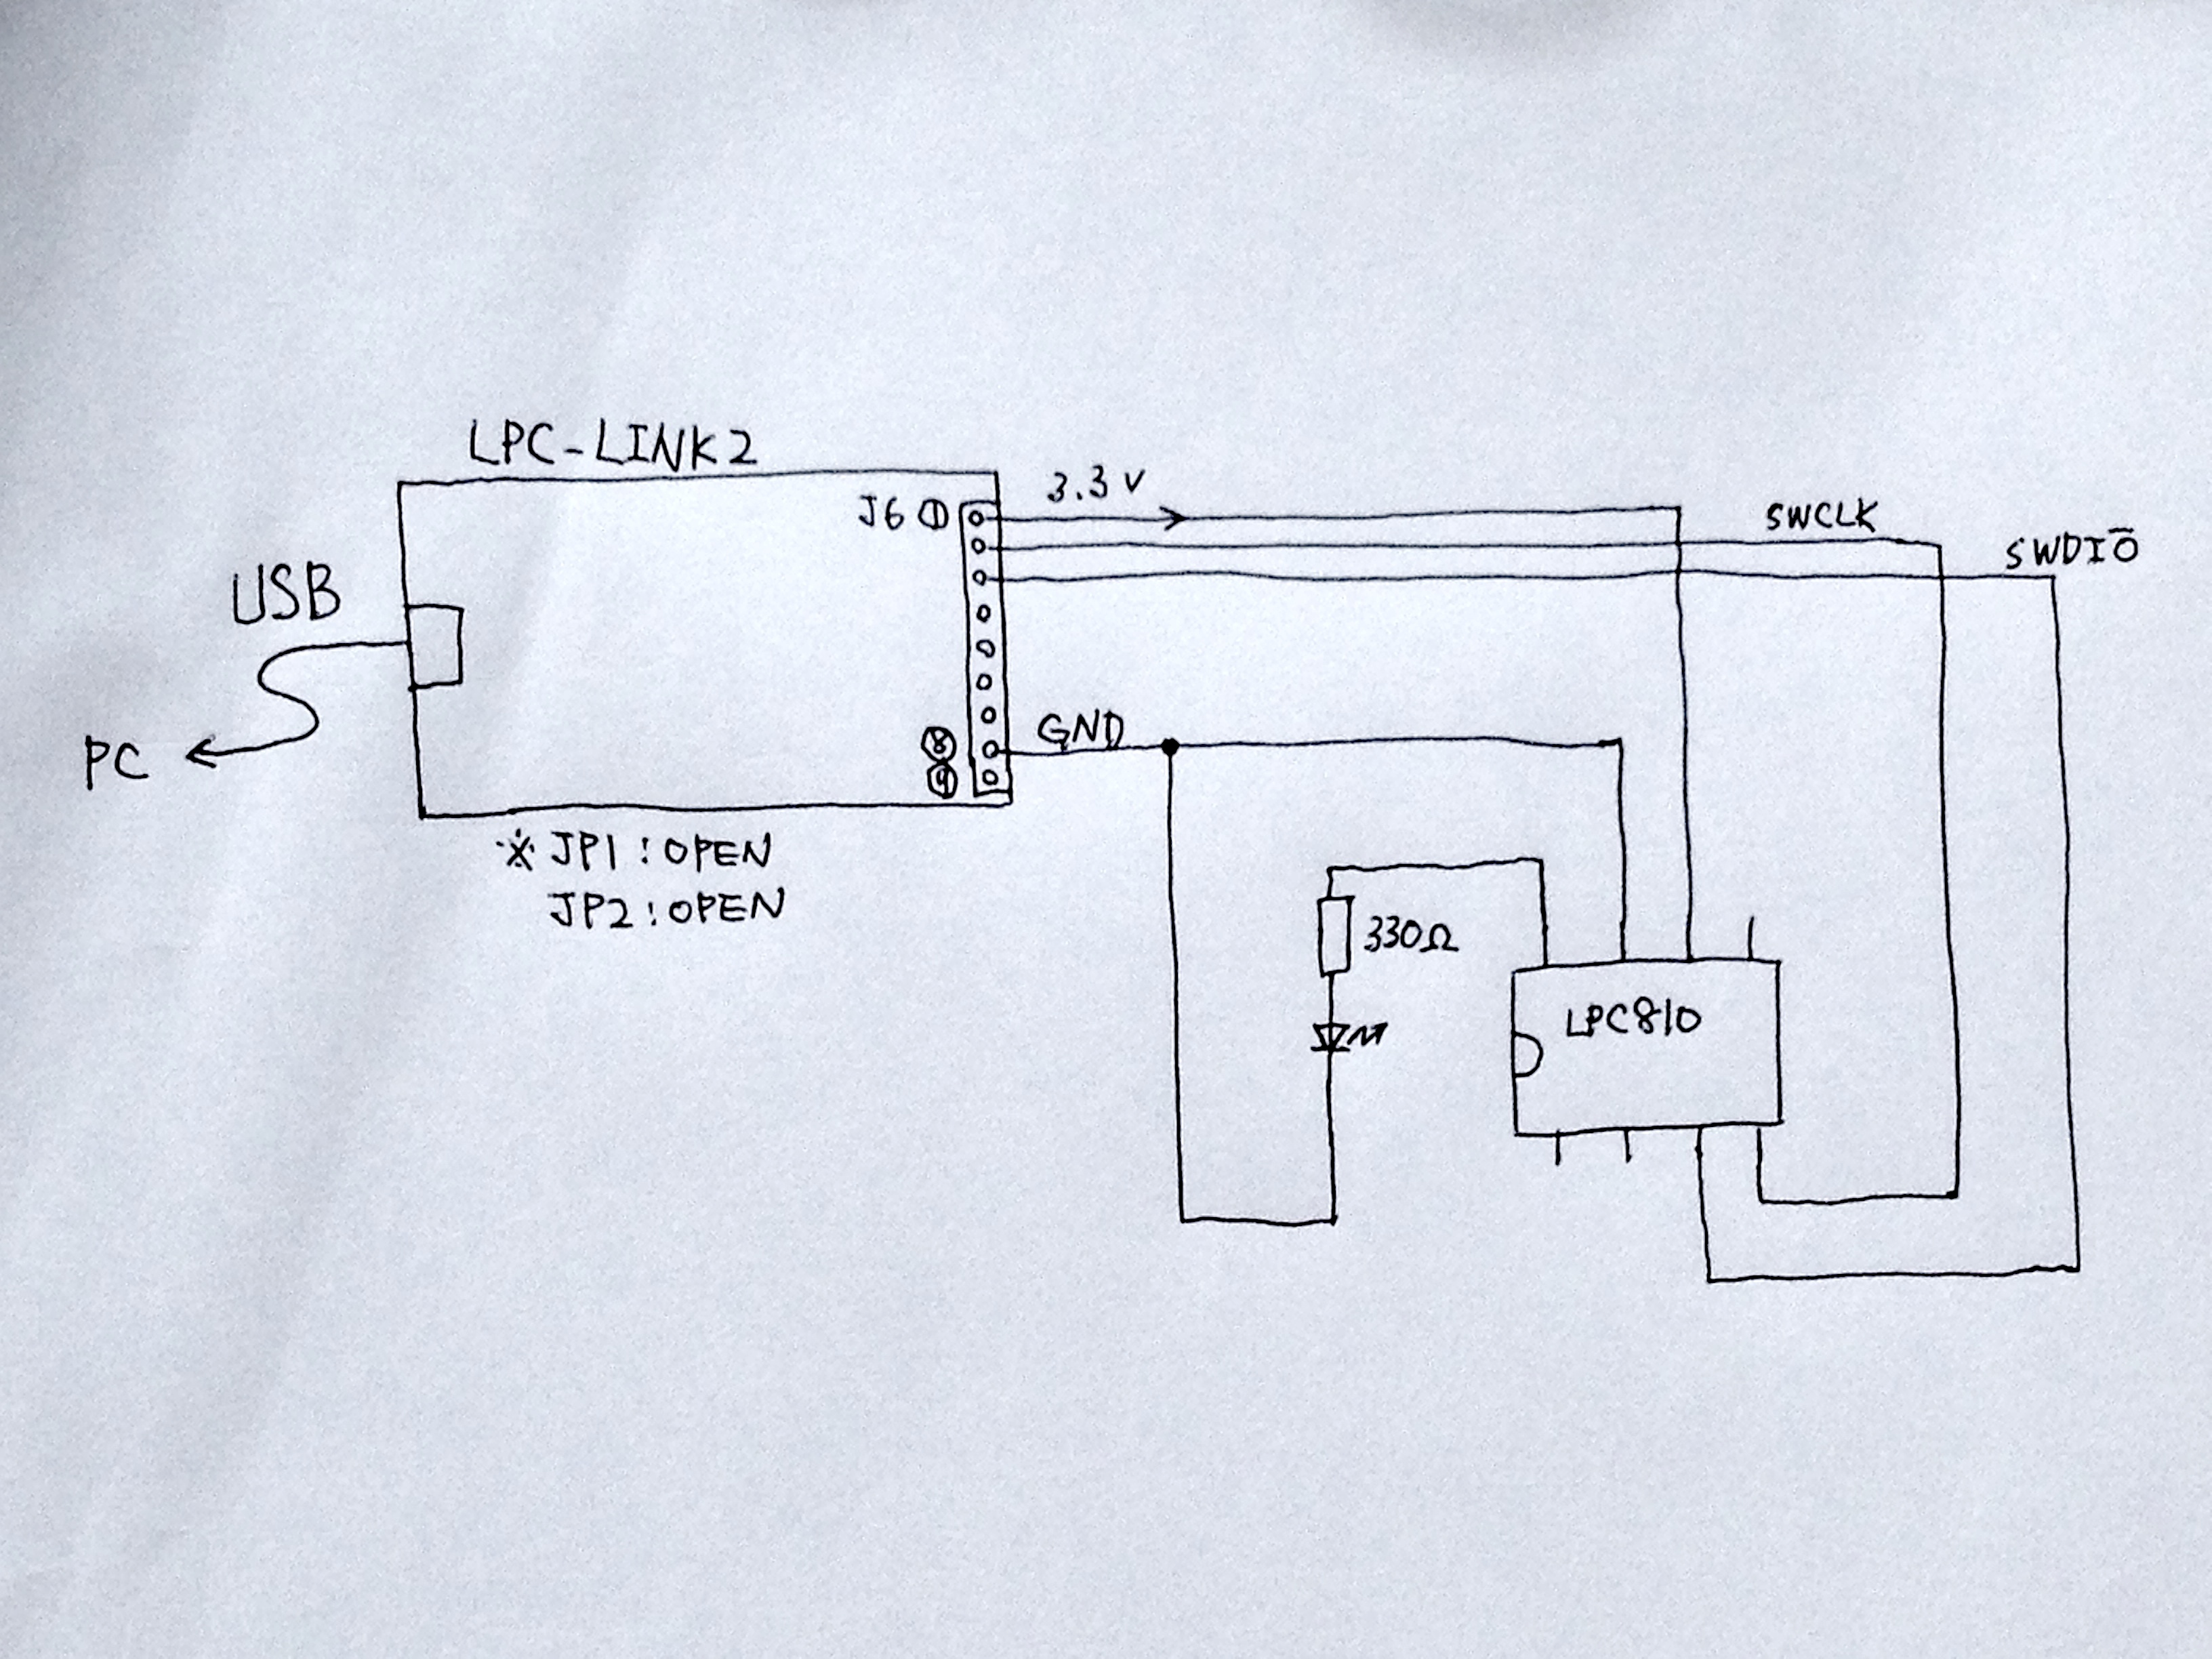 LPC-LINK2
J6 ①
3.3V
SWCLK
SWDIO
USB
PC
⑧
⑨
GND
※ JP1:OPEN
JP2:OPEN
330Ω
LPC810